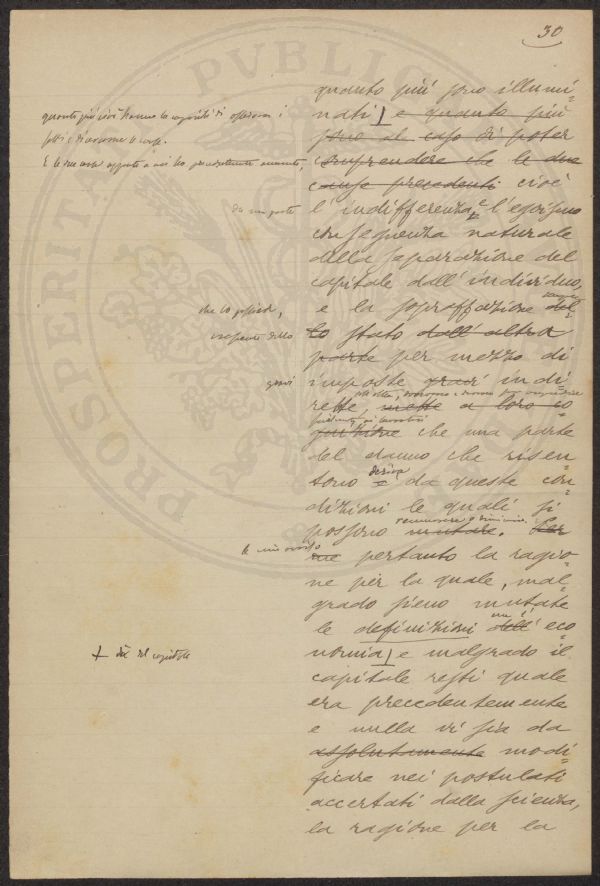 30
quanto più sono illumi=
nati e quanto più
sono al caso di poter
comprendere che le due
cause precedenti cioè
l'indifferenza, e l'egoismo
conseguenza naturale
della separazione del
capitale dall'individuo,
e la sopraffazione del=
lo stato dall'altra
parte per mezzo di
imposte gravi indi=
rette, mette a loro co
gnizione che una parte
del danno che risen=
tono è deriva da queste con=
dizioni le quali si
possono mutare. Per
me pertanto la ragio=
ne per la quale, mal=
grado sieno mutate
le definizioni dell' eco=
nomia, e malgrado il
capitale resti quale
era precedentemente
e nulla vi sia da
assolutamente modi=
ficare nei postulati
accertati dalla scienza,
la ragione per la
quanto più cioè hanno la capacità di osservare i
fatti e di
E le due cause appunto a cui ho precedentemente accennato,
da una parte
che lo possiede,
gravi
+ del capitale
PVBLIC
PROSPERITA